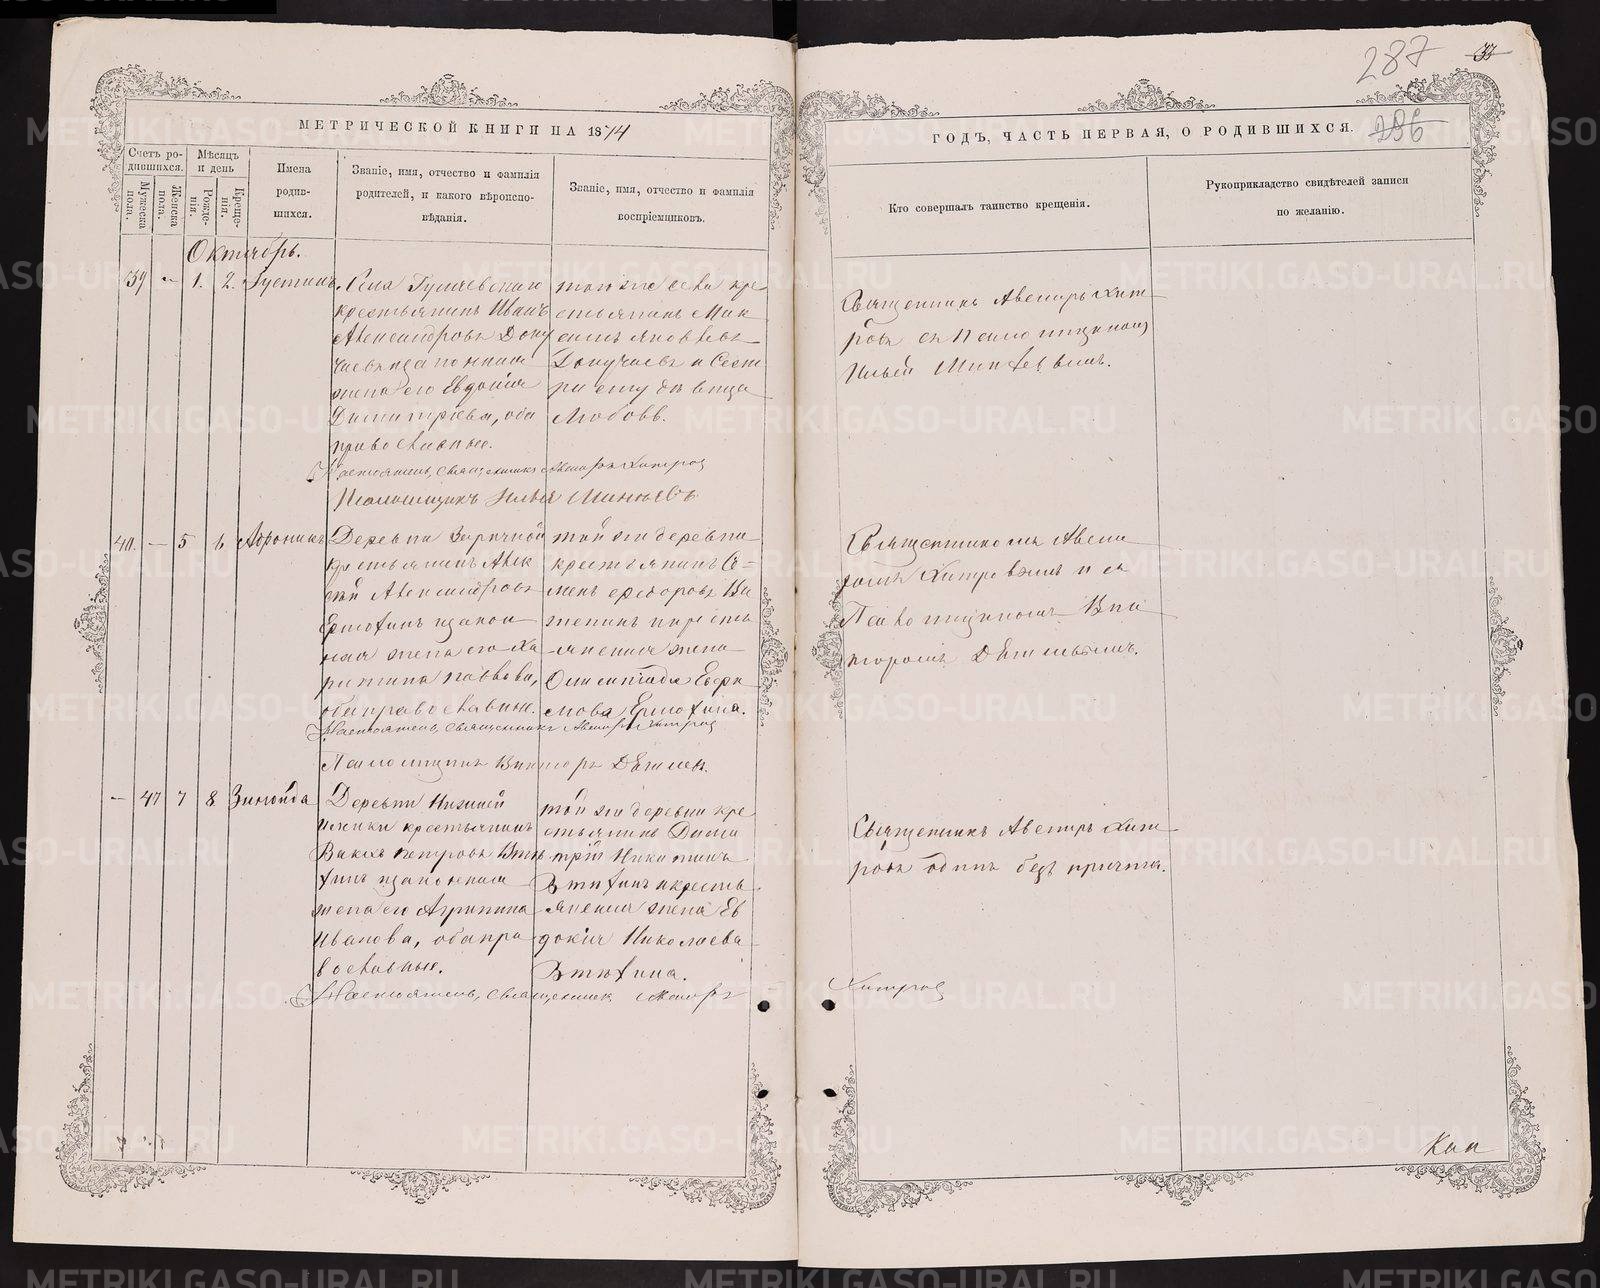 287
33
286
МЕТРИЧЕСКОЙ КНИГИ НА 1874
ГОДЪ, ЧАСТЬ ПЕРВАЯ, О РОДИВШИХСЯ.
Счетъ родившихся.
Мужеска пола.
Женска пола.
Мѣсяцъ и день
Рожденія.
Крещенія.
Имена родившихся.
Званіе, имя, отчество и фамилія родителей, и какого вѣроисповѣданія.
Званіе, имя, отчество и фамилія воспріемниковъ.
Кто совершалъ таинство крещенія.
Рукоприкладство свидѣтелей записи по желанію.
Октябрь.
39 — 1. 2. Іустинъ.
Села
крестьянинъ Иванъ
Александровъ Доку
чаевъ и законная
жена его Евдокія
Димитріева, оба
православные.
того же села кре
стьянинъ Мак
симъ Яковлевъ
Докучаевъ и сест
ра ему девица
Любовь.
Священникъ Авениръ Хит
ровъ съ псаломщикомъ
Ильей
Настоятель, Священникъ Авениръ Хитровъ
Псаломщикъ Илья
40. — 5 6 Афронинъ
Деревни Заречной
крестьянинъ Алек
сей Александровъ
Ермохинъ и закон
ная жена его Ха
ритина Павлова,
оба православные.
той же деревни
крестьянинъ Се=
менъ Федоровъ
и кресть
янская жена
Ермохина.
Священникомъ Авени
ромъ Хитровымъ и съ
Псаломщикомъ Вик
торомъ
Настоятель, Священникъ Авениръ Хитровъ
Псаломщикъ Викторъ
— 41 7 8 Зинаида
Деревни Нижней
крестьянинъ
Вакхъ Петровъ Втю
хинъ и законная
жена его Агрипина
Иванова, оба пра
вославные.
той же деревни кре
стьянинъ Дими
трій Никитинъ
Втюхинъ и кресть
янская жена Ев
докія Николаева
Втюхина.
Священникъ Авениръ Хит
ровъ одинъ безъ причта.
Настоятель, Священникъ Авениръ
Хитровъ
METRIKI.GASO-URAL.RU